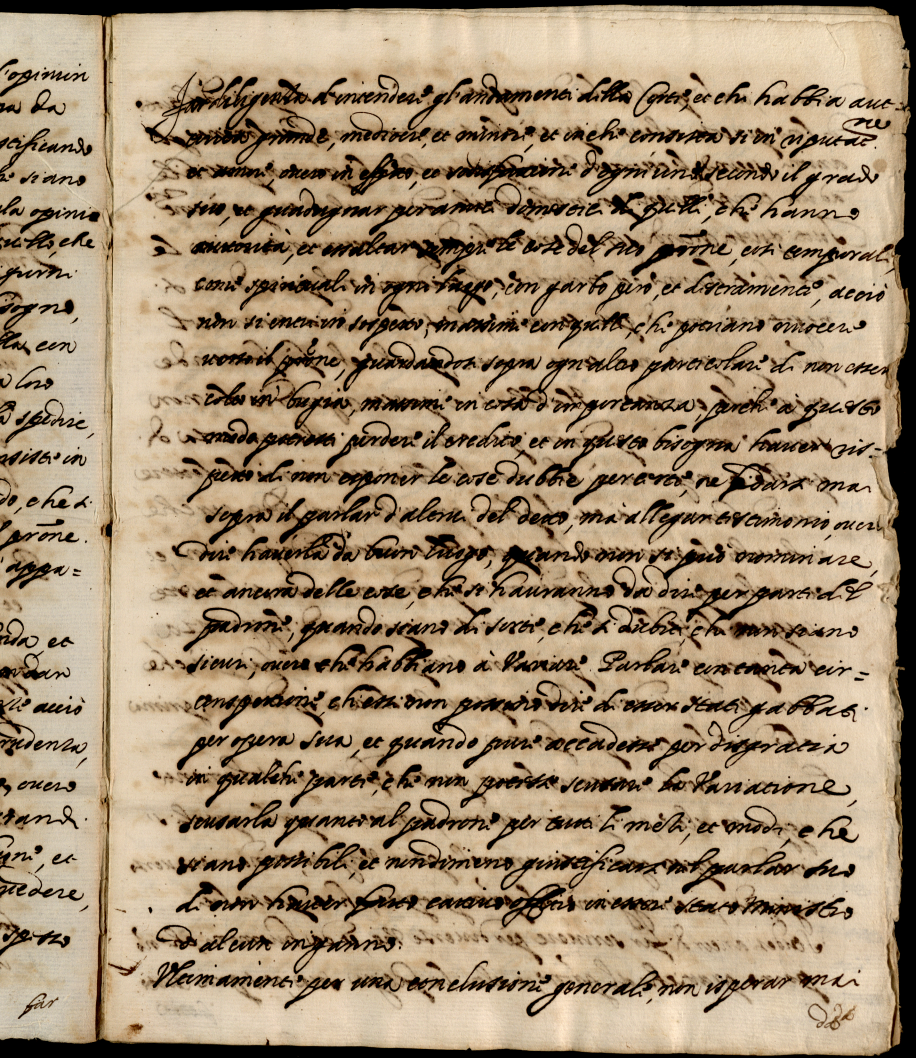 l'opinion
ra da
stificando
he siano
ula opinio
quelli, che
giorni
sogno,
lla con
a loro
spedire,
nsiste in
do, che
l prone.
appa=
nda et
mandar
acciò
rudenza,
, overo
tandi.
et
vedere,
spetto
far
Far diligenza d'intendere gl'andamenti della Corte, et chi habbia aut=
torità grande, mediocre, et minore, et in che consista si in riputat.ne
et nome, overo in effetto, et d'ogni uno secondo il grado
suo, et guadagnar per amici domestici di quelli, che hanno
autorità, et essaltar sempre le cose del suo prone, così temporali,
come spirituali in ogni luogo, con garbo però, et destramente, acciò
non si entri in sospetto, massime con quelli, che potriano nuocere
verso il prone, guardandosi sopra ogn'altro particolare di non esser
colto in bugia, massime in cosa d'importanza, perche a questo
modo potresti perdere il credito, et in questo bisogna haver ris=
petto di non esponer le cose dubbie per certe, ne fidarsi mai
sopra il parlar d'alcuni del detto, ma allegar testimonio, over
dire haverla da buon luogo, quando non si può nominare,
et ancora delle cose, che si hauranno da dire per parte del
padrone, quando siano di sorte, che si dubiti, che non siano
sicure, overo che habbiano à Variare. Parlare con tanta cir=
conspettione, che essi non possino dire di esser stati gabbati
per opera sua, et quando pure accadesse per disgratia
in qualche parte, che non potesse scusare la Variatione,
scusarla quanto al padrone per tutti li mezi, et modi, che
siano possibili, et nondimeno giustificarsi nel parlar suo
di non haver fatto cattivo offitio in essere stato Ministro
d'alcun inganno.
Ultimamente per una conclusione generale, non isperar mai